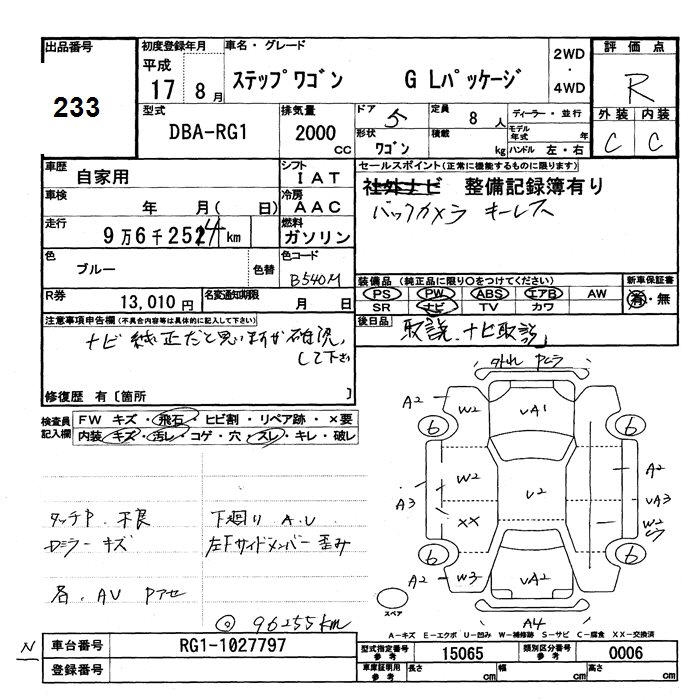 出品番号
233
初度登録年月
平成
17 8月
車名・グレード
ステップワゴン G Lパッケージ
2WD
・
4WD
評価点
R
外装 内装
C C
型式
DBA-RG1
排気量
2000
CC
ドア
5
定員
8 人
ディーラー・並行
形状
ワゴン
積載
kg
モデル年式 年
ハンドル 左・右
車歴
自家用
シフト
I AT
セールスポイント(正常に機能するものに限ります)
社外ナビ 整備記録簿有り
バックカメラ キーレス
車検
年 月( 日)
冷房
A AC
走行
9万6千252 km
燃料
ガソリン
色
ブルー
色替
色コード
B540M
装備品 (純正品に限り○をつけてください)
PS PW ABS エアB AW
SR ナビ TV カワ
新車保証書
有・無
R券
13,010円
名変通知期限
月 日
後日品
取説、ナビ取説
注意事項申告欄(不具合内容等は具体的に記入して下さい)
ナビ純正だと思いますが確認
して下さい
修復歴 有〔箇所 〕
検査員記入欄
FW キズ・飛石・ヒビ割・リペア跡・×要
内装 キズ・汚レ・コゲ・穴・スレ・キレ・破レ
タッチP. 不良
下廻り A.U
ロミラー キズ
左Fサイドメンバー歪み
各. AV Pアセ
◎ 96255km
外れ Pヒラ
A2 W2 UA1
6 6
W2 U2 A2
A3 UA3
XX W2
6 6
A2 W3 UA2
A4
スペア
A-キズ E-エクボ U-凹み W-補修跡 S-サビ C-腐食 XX-交換済
N
車台番号
RG1-1027797
登録番号
型式指定番号
参考
15065
類別区分番号
参考
0006
車庫証明用
参考
長さ cm
幅 cm
高さ cm